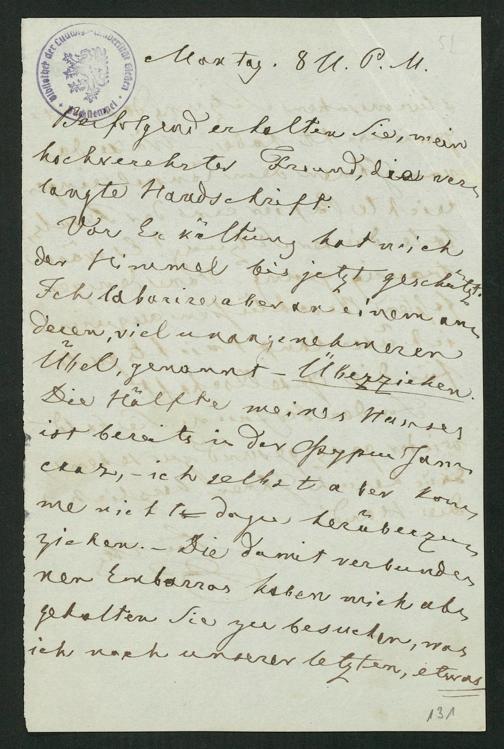 51
Bibliothek der Ludwigs-Universität Gießen
Montag. 8 U. P. M.
Beifolgend erhalten Sie, mein
hochverehrter Freund, die ver-
langte Handschrift.
Vor Erkältung hat mich
der Himmel bis jetzt geschützt.
Ich laborire aber an einem an-
deren, viel unangenehmeren
Übel, genannt – Überziehen.
Die Hälfte meines Hauses
ist bereits in der
– ich selbst aber kom-
me nicht dazu herüberzu-
ziehen. – Die damit verbunde-
nen Embarras haben mich abe-
gehalten Sie zu besuchen, was
ich nach unserer letzten, etwas
131